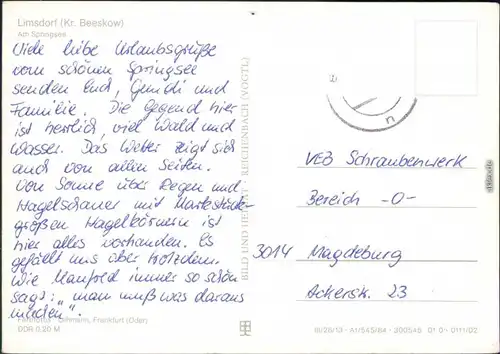 Limsdorf (Kr. Beeskow)
Am Springsee
Viele liebe Urlaubsgrüße
vom schönen Springsee
senden Euch, Gundi und
Familie. Die Gegend hier
ist herrlich, viel Wald und
Wasser. Das Wetter zeigt sich
auch von allen Seiten.
Von Sonne über Regen und
Hagelschauer mit Markstück-
großen Hagelkörnern ist
hier alles vorhanden. Es
gefällt uns aber trotzdem.
Wie Manfred immer so schön
sagt: „man muß was daraus
machen".
Farbfotos: Gihmann, Frankfurt (Oder)
DDR 0,20 M
BILD UND HEIMAT · REICHENBACH (VOGTL)
VEB Schraubenwerk
Bereich -0-
3014 Magdeburg
Ackerstr. 23
III/26/13 · A1/545/84 · 300545 01 0-0111/02